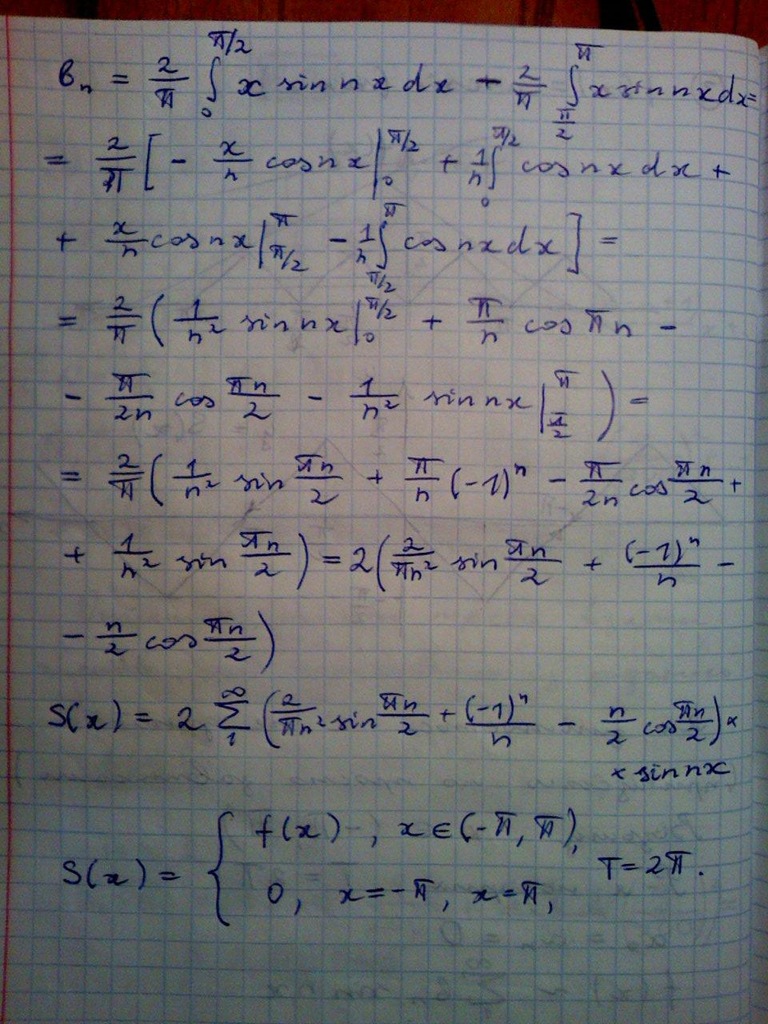 bₙ = 2/π ∫₀^{π/2} x sin nx dx - 2/π ∫_{π/2}^{π} x sin nx dx =
= 2/π [ - x/n cos nx |₀^{π/2} + 1/n ∫₀^{π/2} cos nx dx +
+ x/n cos nx |_{π/2}^{π} - 1/n ∫_{π/2}^{π} cos nx dx ] =
= 2/π ( 1/n² sin nx |₀^{π/2} + π/n cos πn -
- π/2n cos πn/2 - 1/n² sin nx |_{π/2}^{π} ) =
= 2/π ( 1/n² sin πn/2 + π/n (-1)ⁿ - π/2n cos πn/2 +
+ 1/n² sin πn/2 ) = 2 ( 2/πn² sin πn/2 + (-1)ⁿ/n -
- n/2 cos πn/2 )
S(x) = 2 ∑₁^∞ ( 2/πn² sin πn/2 + (-1)ⁿ/n - n/2 cos πn/2 ) ×
× sin nx
S(x) = { f(x), x ∈ (-π, π),
0, x = -π, x = π, T = 2π.